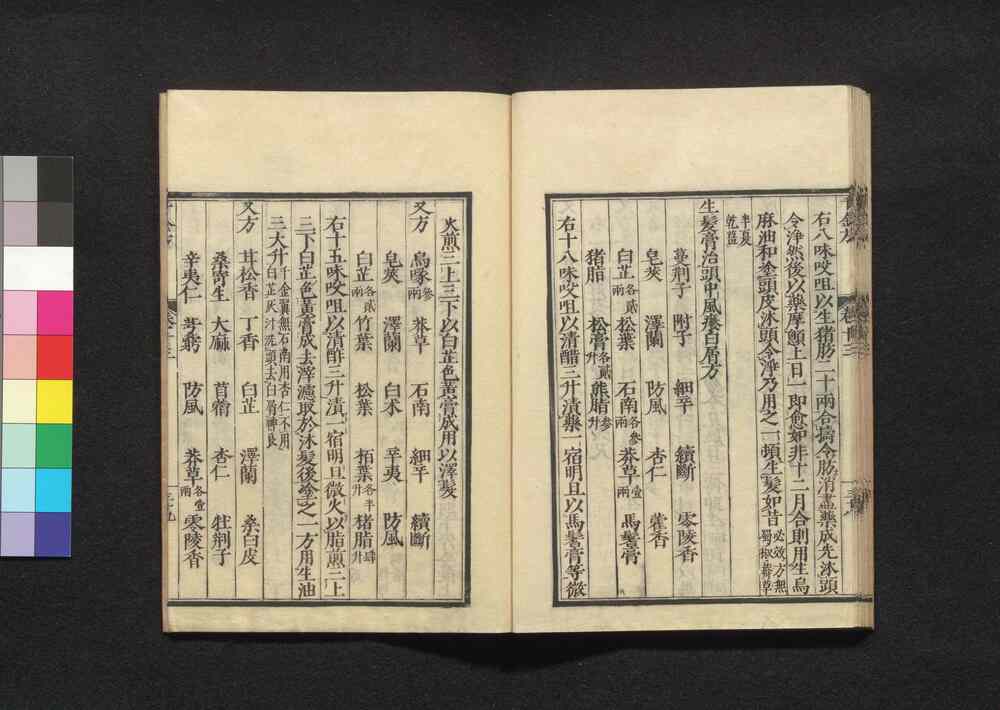 右八味㕮咀以生猪肪二十兩合擣令肪消盡藥成先沐頭
令淨然後以藥摩顖上日一即愈如非十二月合則用生烏
麻油和塗頭皮沐頭令淨乃用之一頓生髮如昔必效方無蜀椒莽草
半夏乾薑
生髮膏治頭中風癢白屑方
蔓荆子 附子 細辛 續斷 零陵香
皂莢 澤蘭 防風 杏仁 藿香
白芷各貳兩 松葉 石南各參兩 莽草壹兩 馬鬐膏
猪脂 松膏各貳升 熊脂參升
右十八味㕮咀以清醋三升漬藥一宿明旦以馬鬐膏等微
火煎三上三下以白芷色黃膏成用以澤髮
又方 烏喙參兩 莽草 石南 細辛 續斷
皂莢 澤蘭 白朮 辛夷 防風
白芷各貳兩 竹葉 松葉 栢葉各半升 猪脂肆升
右十五味㕮咀以清酢三升漬一宿明旦微火以脂煎三上
三下白芷色黃膏成去滓濾取於沐髮後塗之一方用生油
三大升千金翼無石南用杏仁不用白芷灰汁洗頭去白屑神良
又方 甘松香 丁香 白芷 澤蘭 桑白皮
桑寄生 大麻 苜蓿 杏仁 牡荆子
辛夷仁 芎藭 防風 莽草各壹兩 零陵香